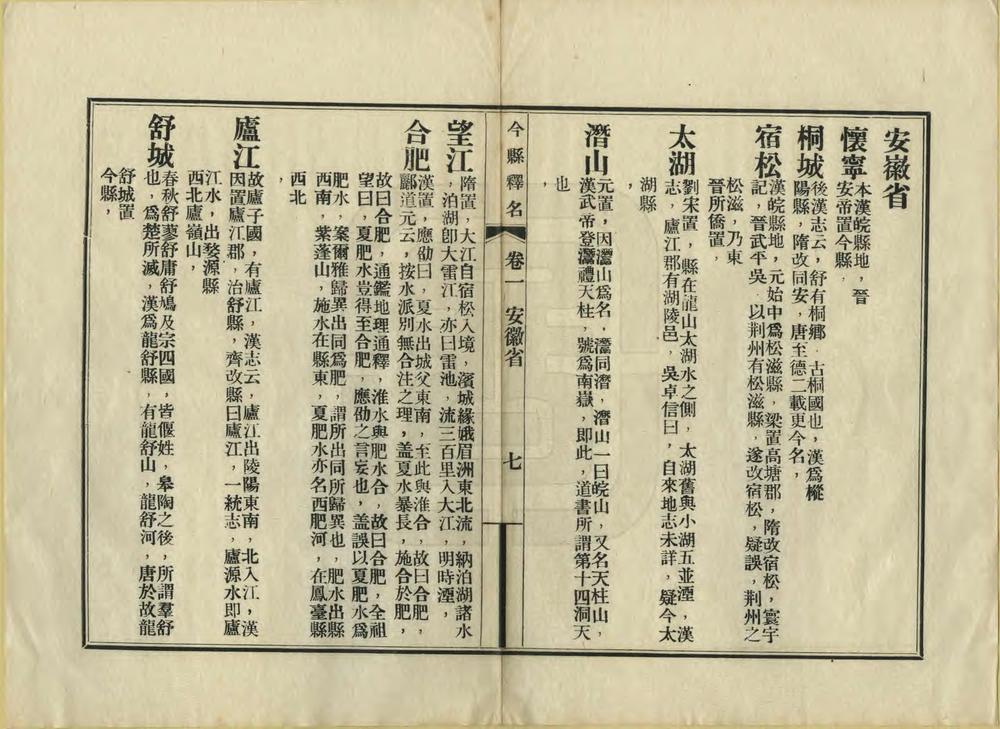 安徽省
懷寧
本漢皖縣地，晉
安帝置今縣，
桐城
後漢志云，舒有桐鄉，古桐國也，漢爲樅
陽縣，隋改同安，唐至德二載更今名，
宿松
漢皖縣地，元始中爲松滋縣，梁置高塘郡，隋改宿松，寰宇
記，晉武平吳，以荆州有松滋縣，遂改宿松，疑誤，荆州之
松滋，乃東
晉所僑置，
太湖
劉宋置，縣在龍山太湖水之側，太湖舊與小湖五並湮，漢
志，廬江郡有湖陵邑，吳卓信曰，自來地志未詳，疑今太
湖縣
，
潛山
元置，因灊山爲名，灊同潛，潛山一曰皖山，又名天柱山，
漢武帝登灊禮天柱，號爲南嶽，即此，道書所謂第十四洞天
也
，
今縣釋名
卷一 安徽省
七
望江
隋置，大江自宿松入境，濱城緣娥眉洲東北流，納泊湖諸水
，泊湖卽大雷江，亦曰雷池，流三百里入大江，明時湮，
合肥
漢置，應劭曰，夏水出城父東南，至此與淮合，故曰合肥，
酈道元云，按水派別無合注之理，蓋夏水暴長，施合於肥，
故曰合肥，通鑑地理通釋，淮水與肥水合，故曰合肥，全祖
望曰，夏肥水豈得至合肥，應劭之言妄也，蓋誤以夏肥水爲
肥水，案爾雅歸異出同爲肥，謂所出同所歸異也，肥水出縣
西南，紫蓬山，施水在縣東，夏肥水亦名西肥河，在鳳臺縣
西北
，
廬江
故廬子國，有廬江，漢志云，廬江出陵陽東南，北入江，漢
因置廬江郡，治舒縣，齊改縣曰廬江，一統志，廬源水即廬
江水，出婺源縣
西北廬嶺山，
舒城
春秋舒蓼舒庸舒鳩及宗四國，皆偃姓，皋陶之後，所謂羣舒
也，爲楚所滅，漢爲龍舒縣，有龍舒山，龍舒河，唐於故龍
舒城置
今縣，